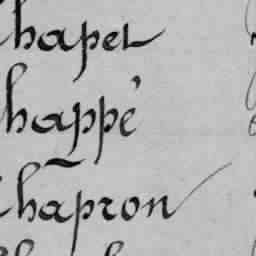 Chapel
Chappé
Chapron